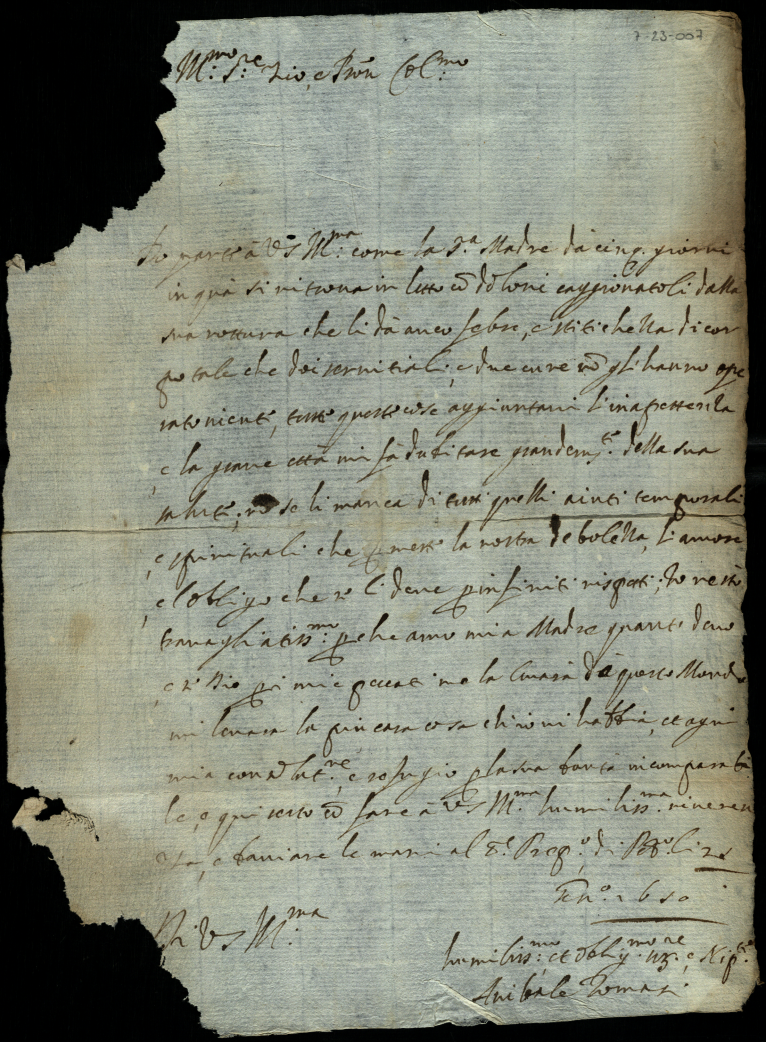 7-23-007
Ill.mo S.re Zio, e Pron Col.mo
Io parte à VS Ill.ma come la S.ra Madre da cinq. giorni
in quà si ritrova in letto cō dolori caggionatoli dalla
sua rottura che li dà anco febre, e stitichezza di cor
po tale che doi servitiali, e due cure nō gli hanno ope
rato niente, tutte queste cose aggiuntavi l'inappetenza
e la grave età mi fà dubitare grandem.te della sua
salute, nō se li manca di tutti quelli aiuti temporali
e spirituali che pmette la nostra debolezza, l'amore
e l'obligo che se li deve p infiniti rispetti, Io resto
travagliatiss.mo pche amo mia Madre quanto devo
e se Dio p i miei peccati me la levarà da questo Mondo
mi levarà la piu cara cosa ch'io vi habbia, et ogni
mia consolat.ne, e refugio p la sua bontà incomparabi
le, e qui resto cō fare à VS Ill.ma humiliss.ma riveren
za, e baciare le mani al S.r di 22
1650
Di VS Ill.ma
humiliss.mo et oblig.mo e Nip.te
Anibale Tomasi